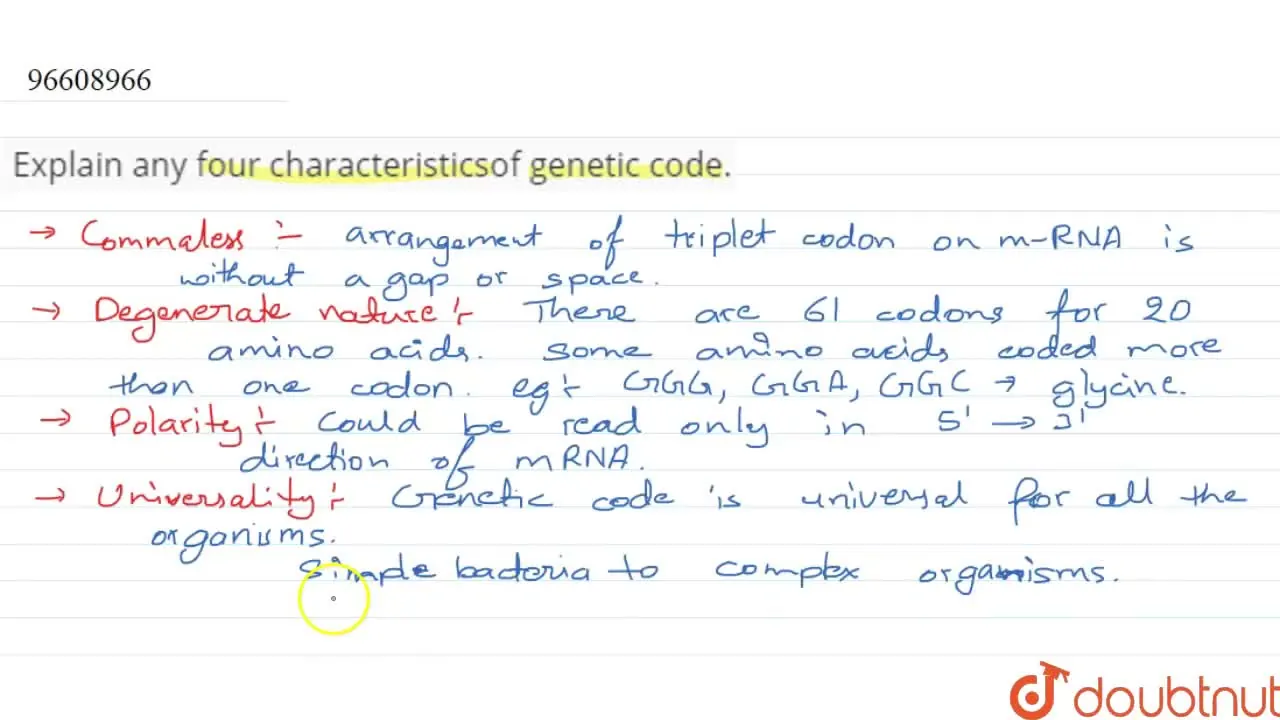 96608966
Explain any four characteristicsof genetic code.
→ Commaless :- arrangement of triplet codon on m-RNA is
without a gap or space.
→ Degenerate nature :- There are 61 codons for 20
amino acids. Some amino acids coded more
than one codon. eg :- GGG, GGA, GGC → glycine.
→ Polarity :- Could be read only in 5' → 3'
direction of mRNA.
→ Universality :- Genetic code is universal for all the
organisms.
Simple bacteria to complex organisms.
doubtnut